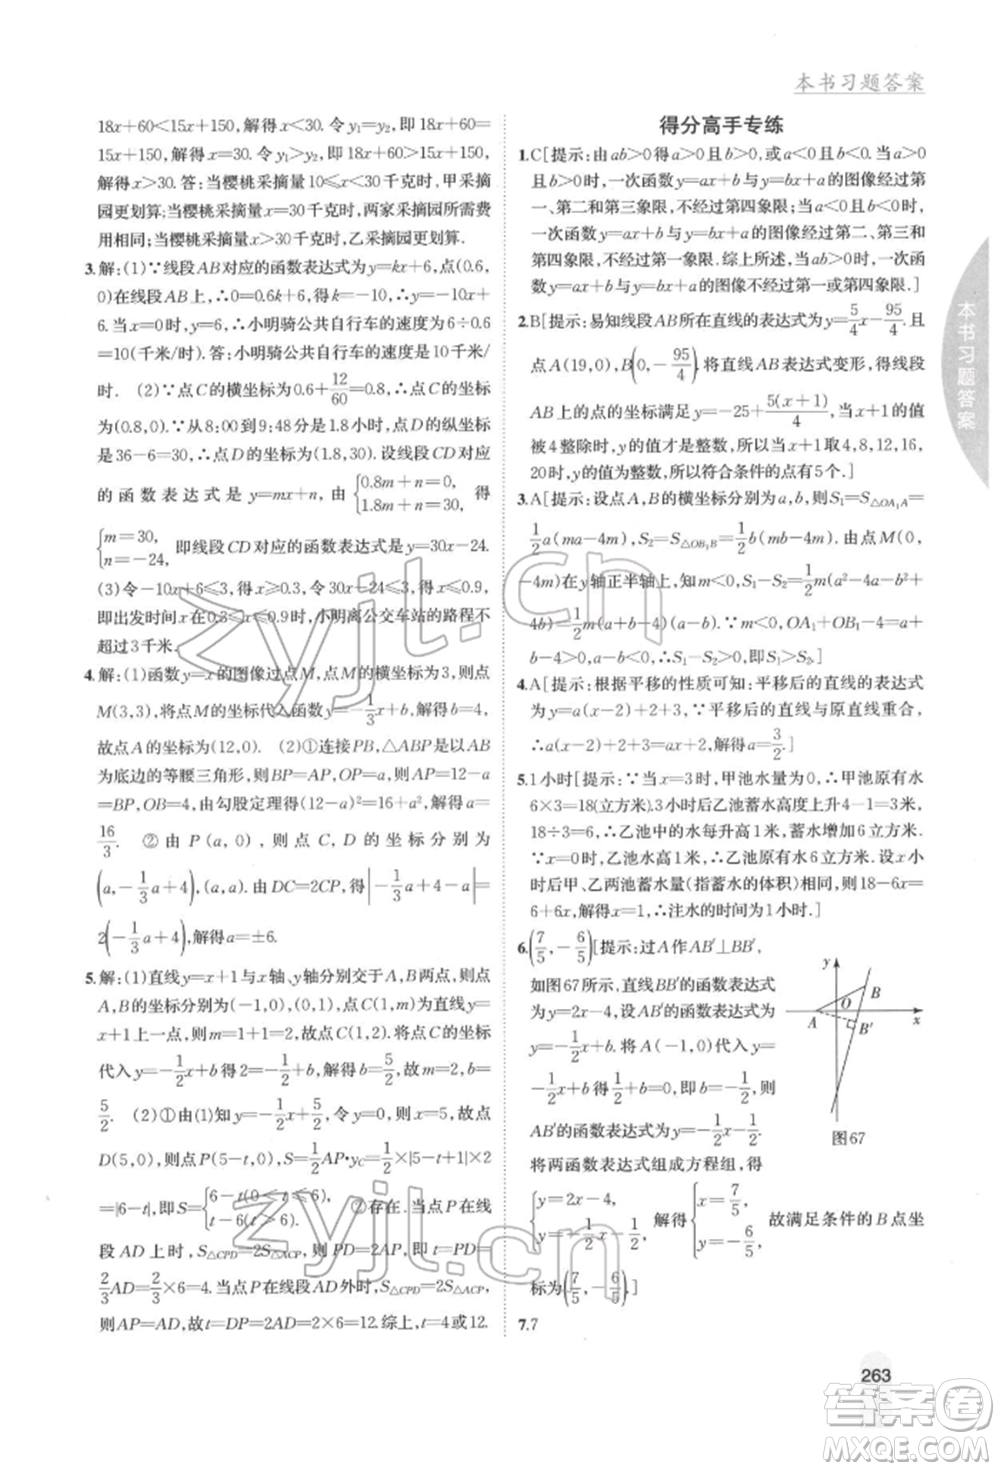 本书习题答案
18x+60<15x+150,解得 x<30.令 y₁=y₂,即 18x+60=
15x+150,解得 x=30.令 y₁>y₂,即 18x+60>15x+150,
解得 x>30.答:当樱桃采摘量 10≤x<30 千克时,甲采摘
园更划算;当樱桃采摘量 x=30 千克时,两家采摘园所需费
用相同;当樱桃采摘量 x>30 千克时,乙采摘园更划算.
3.解:(1)∵线段AB对应的函数表达式为y=kx+6,(0.6,
0)在线段AB上,∴0=0.6k+6,解得k=-10.
当x=0时,y=6,∴小明骑公共自行车的速度为6÷0.6
=10(千米/时).答:小明骑公共自行车的速度为10千米/
时. (2)∵点C的横坐标为0.6+12/60=0.8,∴点C的坐标
为(0.8,0).∵从8:00到9:48分行驶1.8h,点D的纵坐标为
36-6=30,∴点D的坐标为(1.8,30).设线段CD对应
的函数表达式为y=mx+n,由{0.8m+n=0, 1.8m+n=30, 得
{m=30, n=-24, 即线段CD对应的函数表达式是y=30x-24.
(3)令-10x+6≤3,得x≥0.3,令30x-24≤3,得x≤0.9,
即出发时间x在0.3≤x≤0.9时,小明离公交车站的路程不
超过3千米.
4.解:(1)函数y=x的图像过点M,点M的横坐标为3,则点
M(3,3),将点M的坐标代入函数y=-1/3x+b,解得b=4,
故点A的坐标为(12,0). (2)①连接PB,△ABP是以AB
为底边的等腰三角形,则PB=PA,设OP=m,则PA=12-m
=BP,OB=4,由勾股定理得(12-m)²=m²+16,解得m=
16/3. ②由P(a,0),则点C,D的坐标分别为
(a,-1/3a+4),(a,a).由DC=2CP,得|-1/3a+4-a|=
2(-1/3a+4),解得a=±6.
5.解:(1)直线y=x+1与x轴、y轴分别交于A,B两点,则点
A,B的坐标分别为(-1,0),(0,1),点C(1,m)为直线y=
x+1上一点,则m=1+1=2,故点C(1,2).将点C的坐标
代入y=-1/2x+b,得2=-1/2+b,解得b=5/2,故b=
5/2. (2)①由(1)知y=-1/2x+5/2,令y=0,得x=5,故点
D(5,0),则点P的坐标为(5-t,0),S=1/2AP·y_C=1/2×|5-t+1|×2
=|6-t|,即S={6-t(0≤t≤6), t-6(t>6). ②存在.当点P在线
段AD上时,S△CPD=2S△ACP,则PD=2AP,故t=PD=
2/3AD=2/3×6=4.当点P在线段DA延长线上时,S△CPD=2S△ACP,
则PA=AD,故t=DP=2AD=2×6=12.综上,t=4或12.
得分高手专练
1.C[提示:由ab>0得a>0,b>0或a<0,b<0.当a>0,b>
0时,一次函数y=ax+b与y=bx+a的图像经过第
一、第二和第三象限,不经过第四象限.当a<0,b<0时,
一次函数y=ax+b与y=bx+a的图像经过第二、第三和
第四象限,不经过第一象限.综上所述,若ab>0,则一次函
数y=ax+b与y=bx+a的图像不经过第一或第四象限.]
2.B[提示:易知线段AB所在直线的表达式为y=5/4x-95/4.且
点A(19,0),B(0,-95/4).将直线AB表达式变形,得线段
AB上的点的坐标满足y=-25+5(x+1)/4,当(x+1)的值
被4整除时,y的值才是整数,所以当(x+1)取4,8,12,16,
20时,y的值为整数,所以符合条件的点有5个.]
3.A[提示:设点A,B的横坐标分别为a,b,则S₁=S△OA₁A=
1/2a(ma-4m),S₂=S△OB₁B=1/2b(mb-4m).由点M(0,
-4m)在y轴正半轴上,知m<0,S₁-S₂=1/2m(a²-4a-b²+
4b)=1/2m(a-b)(a+b-4).∵m<0,OA₁+OB₁=4-a+
b-4<0,∴S₁-S₂>0,故S₁>S₂.]
4.A[提示:根据平移的性质可知:平移后的直线的表达式为
y=a(x-2)+2+3,∵平移后的直线与原直线重合,
∴a(x-2)+2+3=ax+2,解得a=3/2.]
5.1小时[提示:∵当x=3时,甲池水量为0,∴甲池原有水
6×3=18(立方米).3小时后乙池蓄水高度上升3米,
18÷3=6,∴乙池中的水每升高1米,蓄水增加6立方米.
∵x=0时,乙池水高1米,∴乙池原有水6立方米.设x小
时后甲、乙两池蓄水量(指蓄水的体积)相同,则18-6x=
6+6x,解得x=1,∴注水的时间为1小时.]
6.(7/5,-6/5)[提示:过A作AB′⊥BB′,
如图67所示,直线BB′的函数表达式
为y=2x-4,设AB′的函数表达式为
y=-1/2x+b.将A(-1,0)代入
y=-1/2x+b,解得b=-1/2,则直线
AB′的函数表达式为y=-1/2x-1/2.
将两函数表达式组成方程组,得
{y=2x-4, y=-1/2x-1/2, 解得{x=7/5, y=-6/5. 故满足条件的B点坐
标为(7/5,-6/5).]
y
O
B
A
B′
x
图67
7.7
本书习题答案
263
zyjl.cn
zyjl.cn
答案圈
MXQE.COM